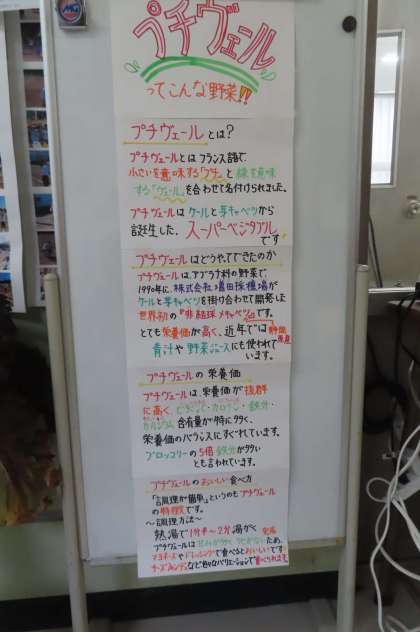 プチヴェール
ってこんな野菜!!
プチヴェールとは?
プチヴェールとはフランス語で、
小さいを意味する「プチ」と緑を意味
する「ヴェール」を合わせて名付けられました。
プチヴェールはケールと芽キャベツから
誕生した、スーパーベジタブル
です
プチヴェールはどうやってできたのか
プチヴェールは、アブラナ科の野菜で、
1990年に、株式会社増田採種場が
ケールと芽キャベツを掛け合わせて開発した
世界初の『非結球メキャベツ』です。
とても栄養価が高く、近年では静岡県産
青汁や野菜ジュースにも使われて
います。
プチヴェールの栄養価
プチヴェールは、栄養価が抜群
に高く、ビタミンC・カロテン・鉄分・
カルシウム含有量が特に多く、
栄養価のバランスにすぐれています。
ブロッコリーの5倍鉄分が多い
とも言われています。
プチヴェールのおいしい食べ方
「調理が簡単」というのもプチヴェール
の特徴です。
〜調理方法〜
熱湯で1分半〜2分湯がく
プチヴェールは甘みが多く ため、
マヨネーズやドレッシングで食べるとおいしいです
チーズフォンデュなど色々なバリエーションで食べられます